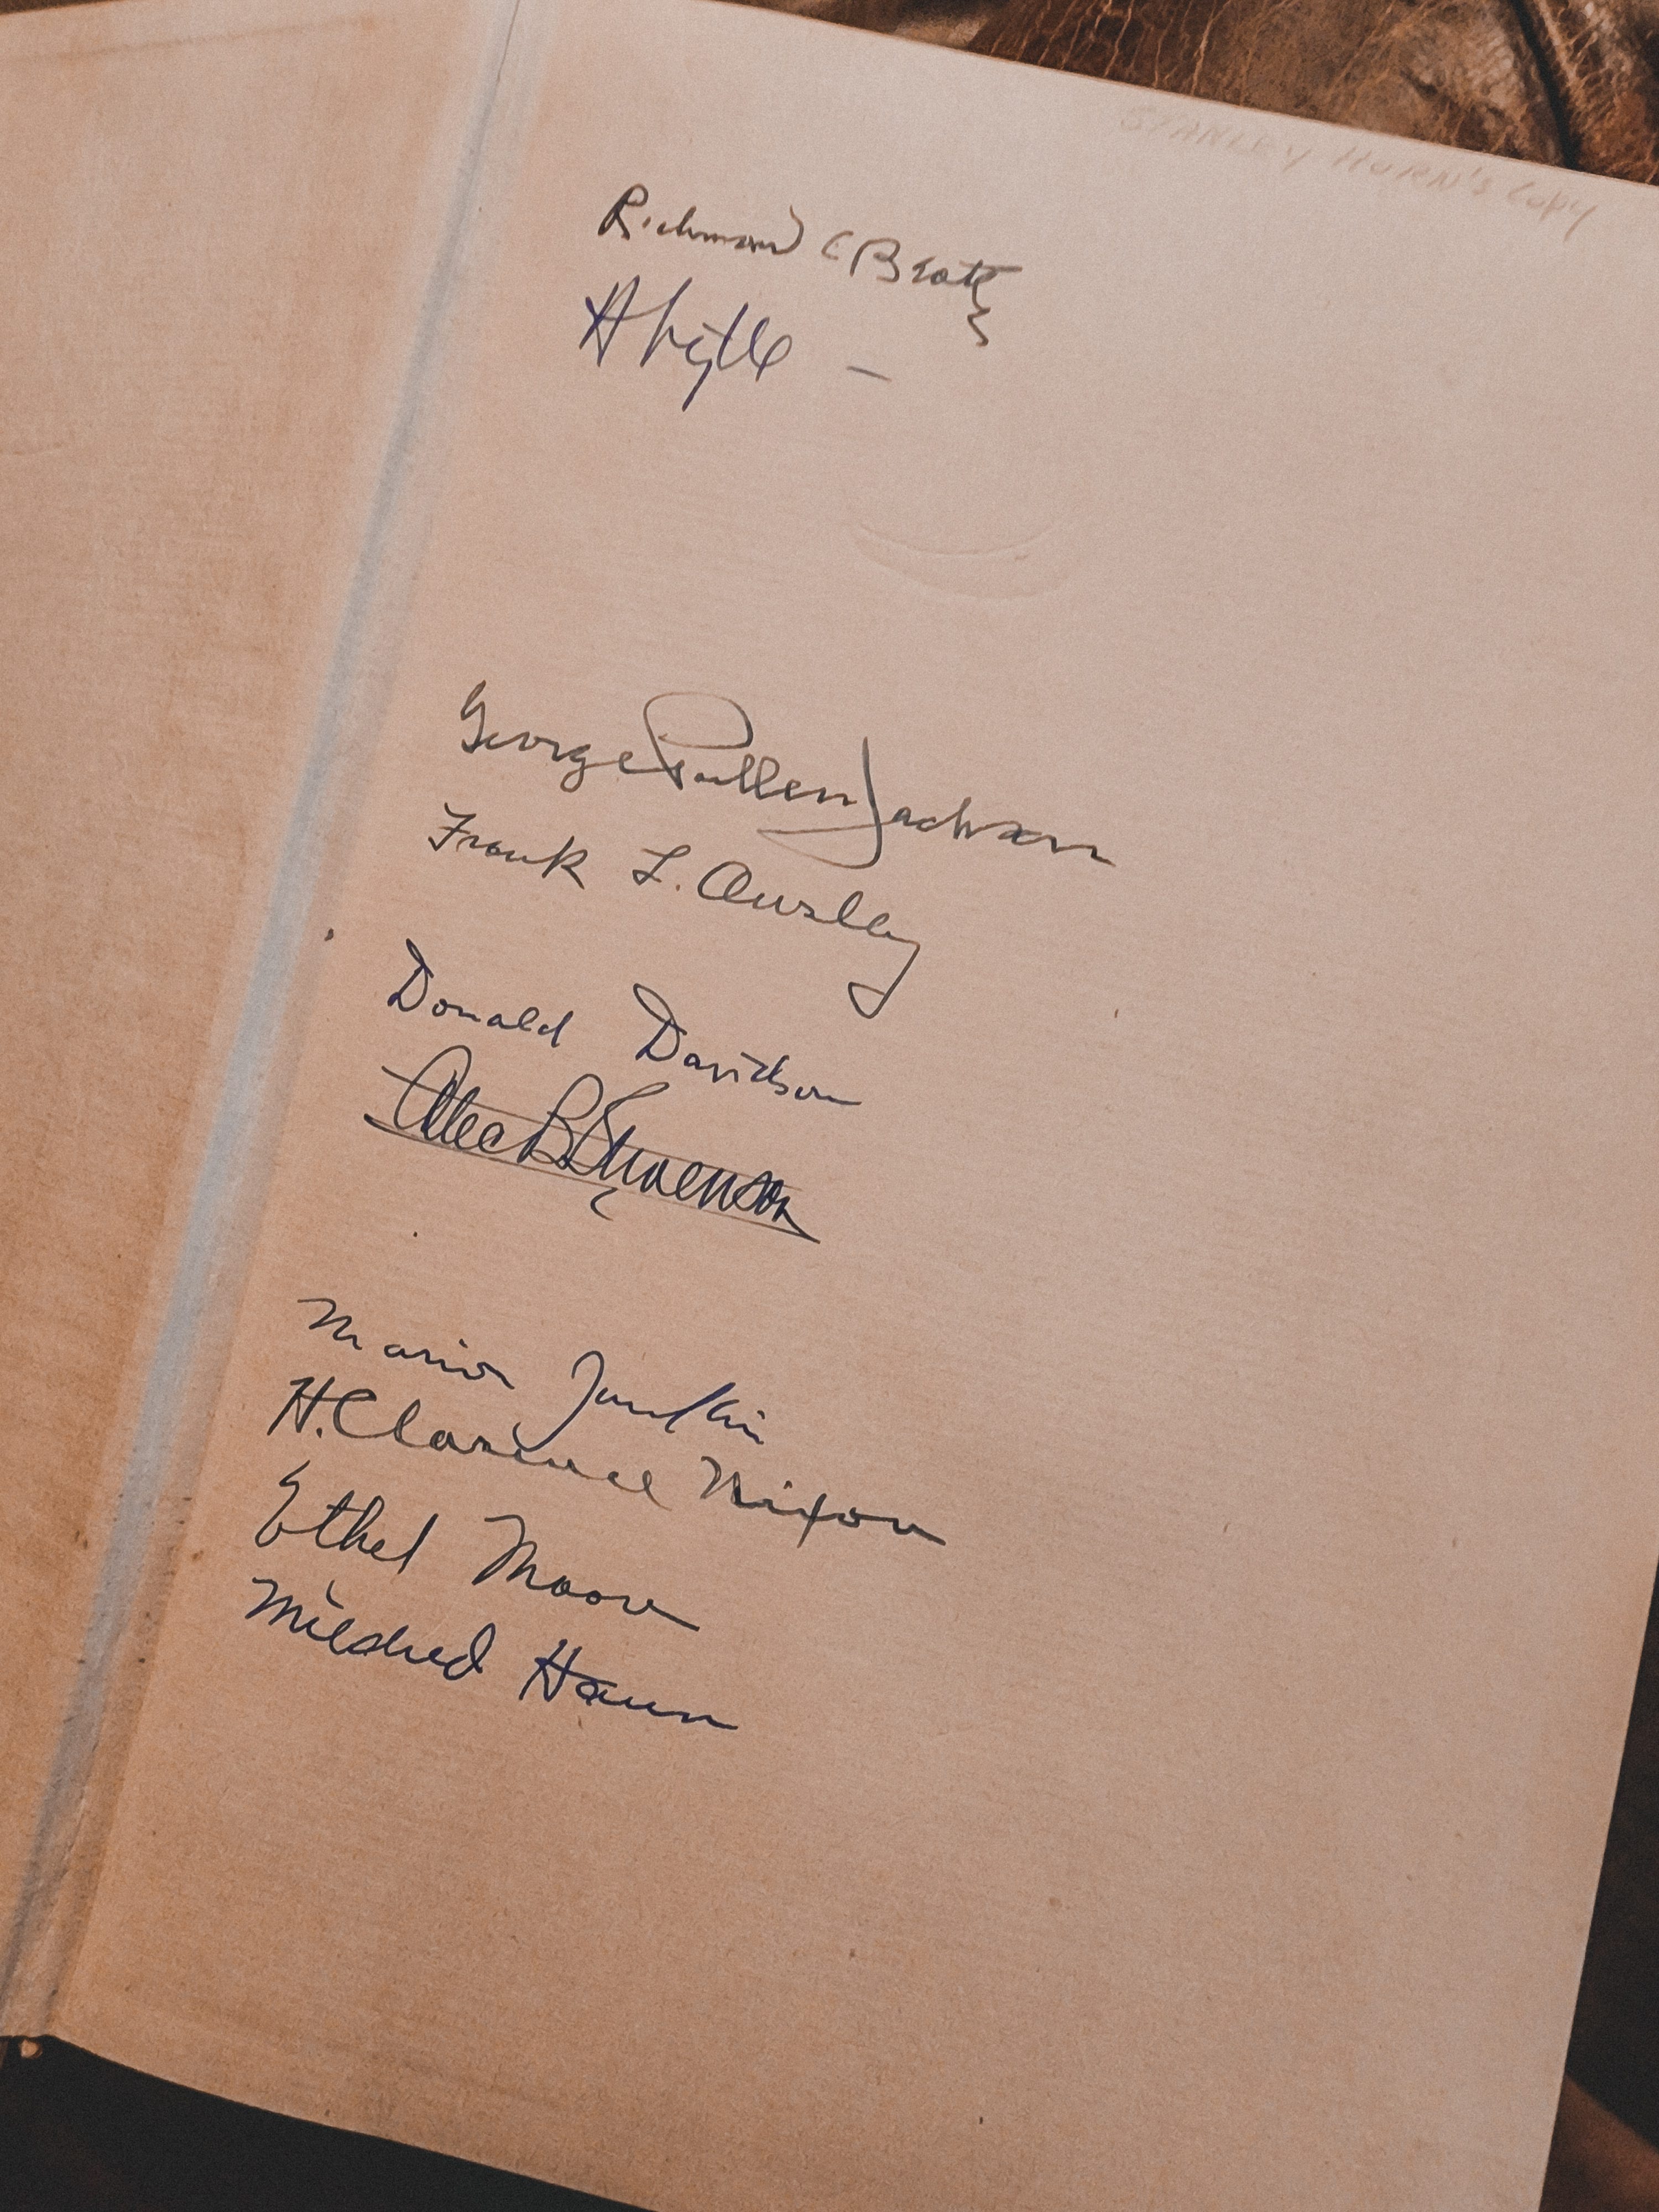 STANLEY HORN'S COPY
Richmond C Beatty
A Lytle –
George Pullen Jackson
Frank L. Owsley
Donald Davidson
Alec B Stevenson
Marion Junkin
H. Clarence Nixon
Ethel Moore
Mildred Haun